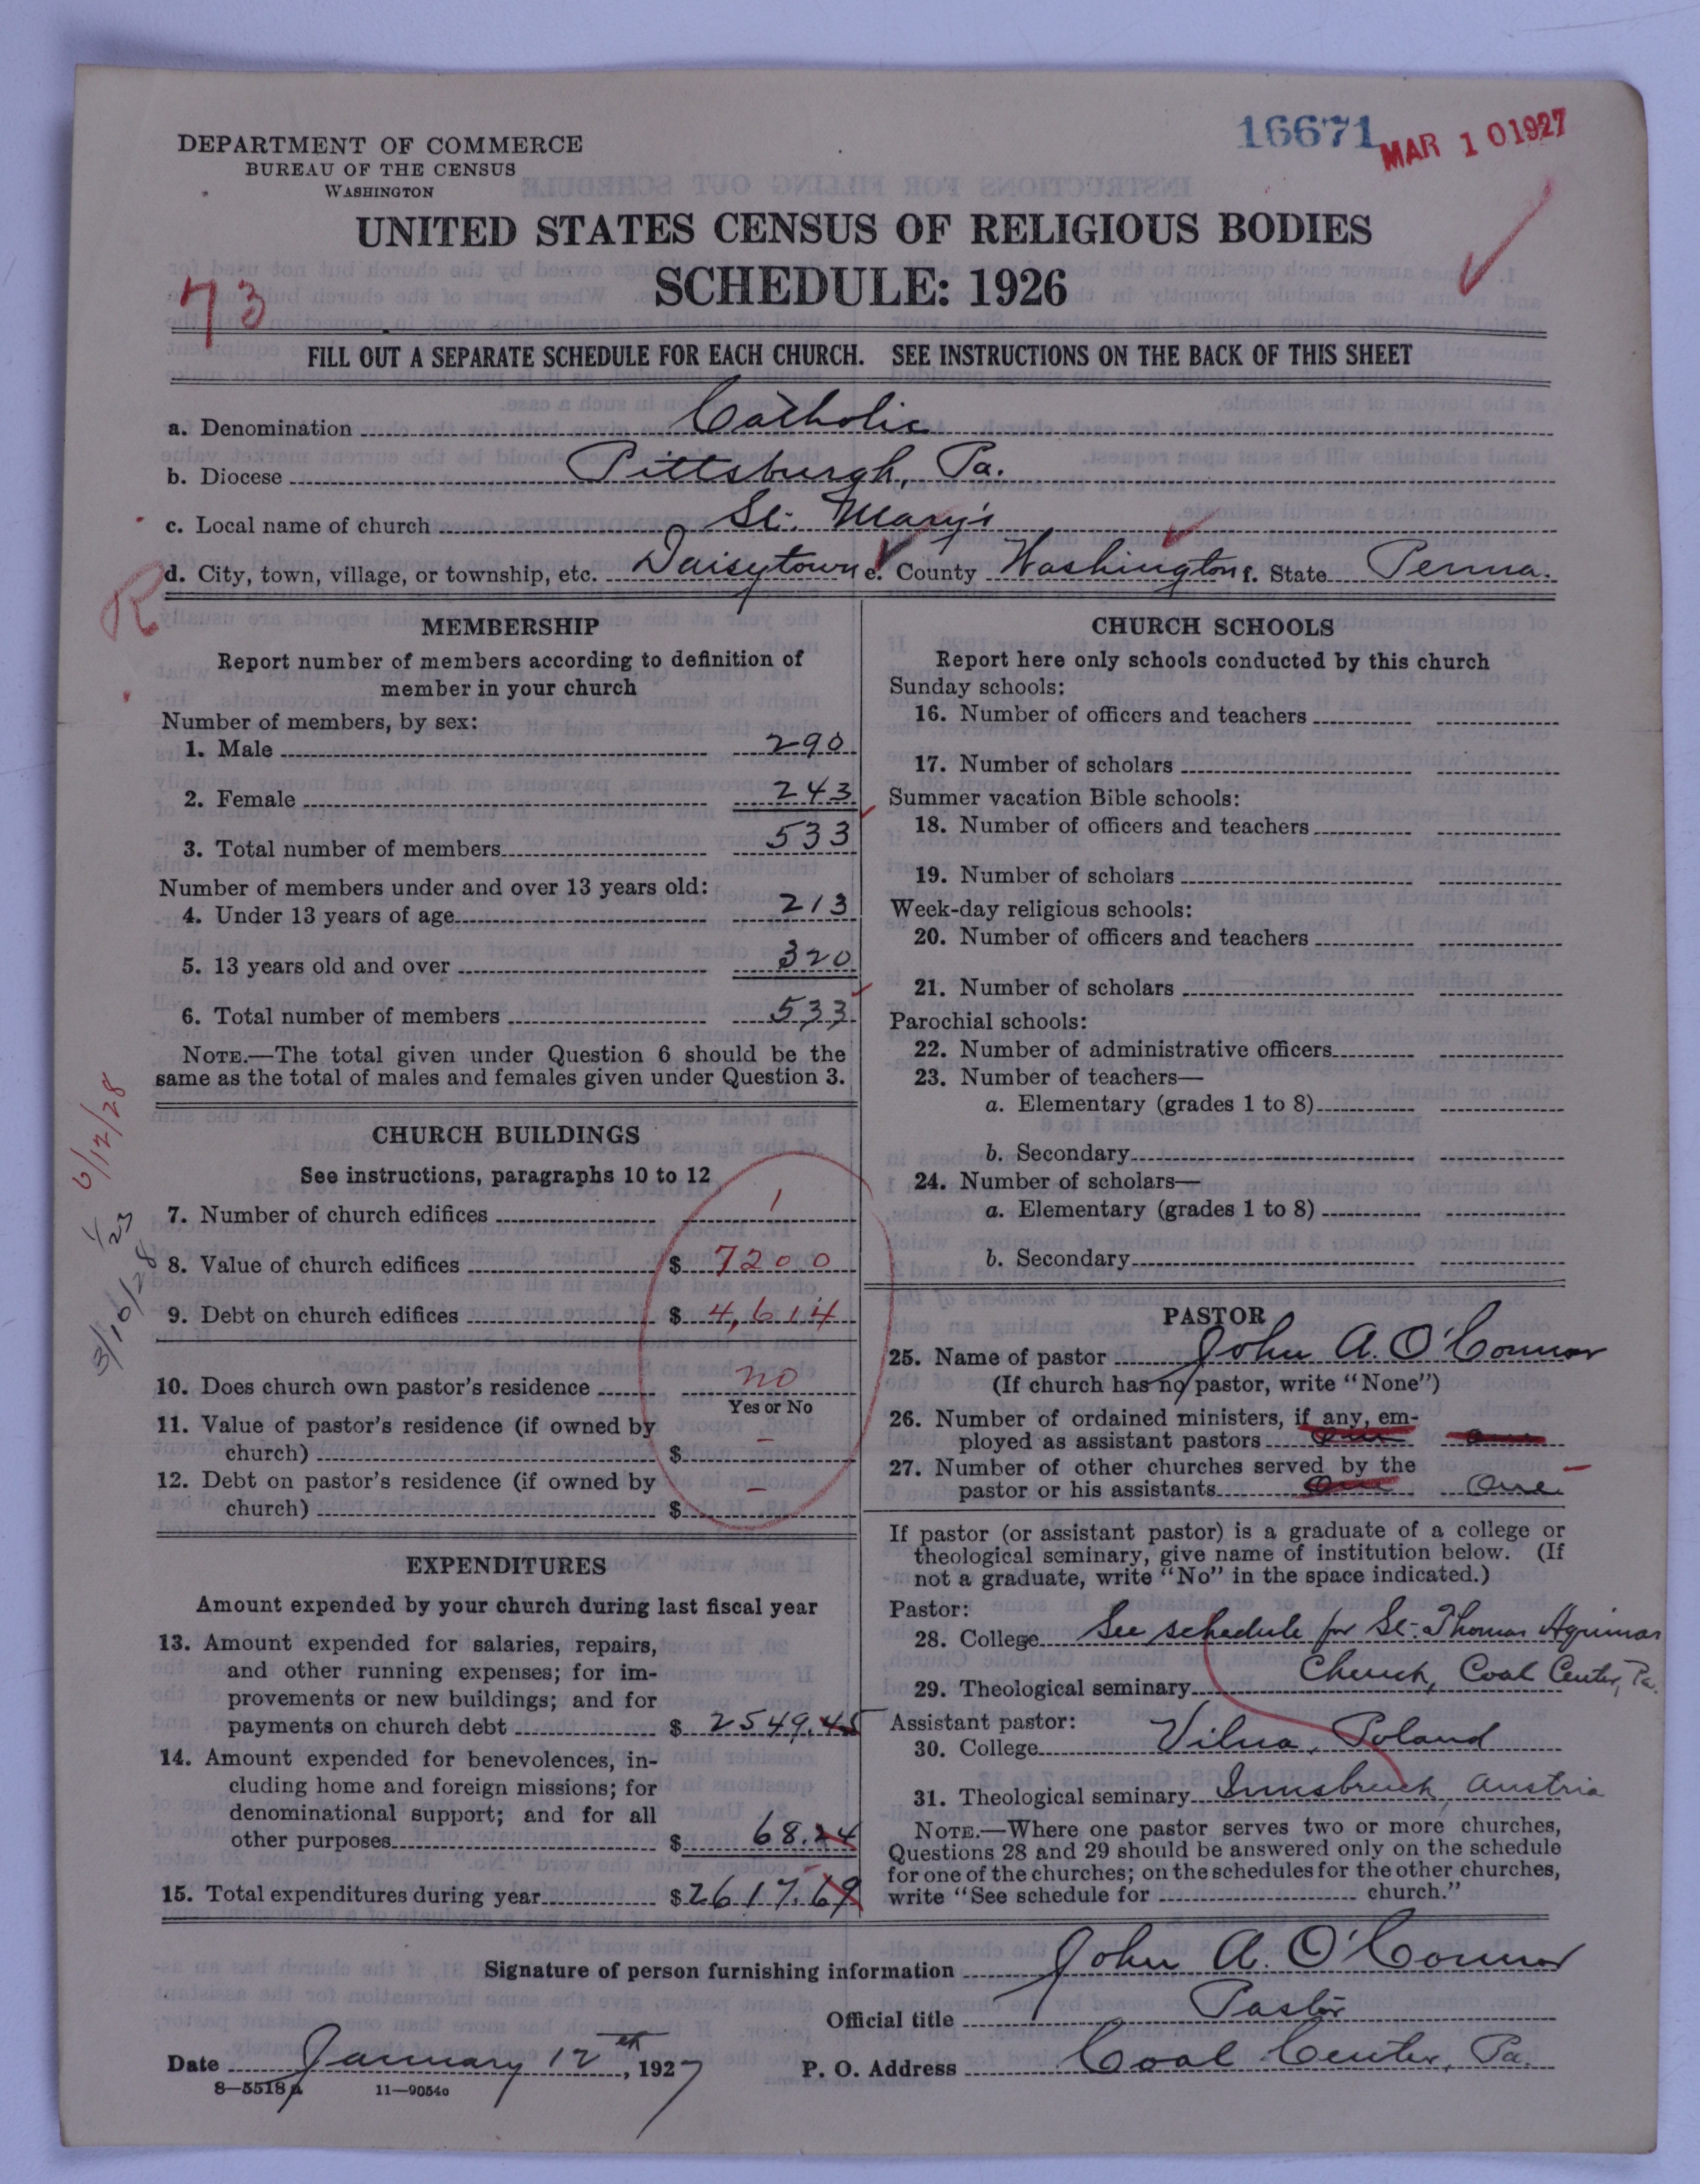 16671
MAR 10 1927
DEPARTMENT OF COMMERCE
BUREAU OF THE CENSUS
WASHINGTON
UNITED STATES CENSUS OF RELIGIOUS BODIES
SCHEDULE: 1926
73
FILL OUT A SEPARATE SCHEDULE FOR EACH CHURCH. SEE INSTRUCTIONS ON THE BACK OF THIS SHEET
a. Denomination Catholic
b. Diocese Pittsburgh, Pa.
c. Local name of church St. Mary's
d. City, town, village, or township, etc. Daisytown e. County Washington f. State Penna.
R
MEMBERSHIP
Report number of members according to definition of
member in your church
Number of members, by sex:
1. Male 290
2. Female 243
3. Total number of members 533
Number of members under and over 13 years old:
4. Under 13 years of age 213
5. 13 years old and over 320
6. Total number of members 533
NOTE.—The total given under Question 6 should be the
same as the total of males and females given under Question 3.
6/12/28
1/23
3/10/28
CHURCH BUILDINGS
See instructions, paragraphs 10 to 12
7. Number of church edifices 1
8. Value of church edifices $ 7200
9. Debt on church edifices $ 4,614
10. Does church own pastor's residence no
Yes or No
11. Value of pastor's residence (if owned by
church) $ –
12. Debt on pastor's residence (if owned by
church) $ –
EXPENDITURES
Amount expended by your church during last fiscal year
13. Amount expended for salaries, repairs,
and other running expenses; for im-
provements or new buildings; and for
payments on church debt $ 2549.45
14. Amount expended for benevolences, in-
cluding home and foreign missions; for
denominational support; and for all
other purposes $ 68.24
15. Total expenditures during year $ 2617.69
CHURCH SCHOOLS
Report here only schools conducted by this church
Sunday schools:
16. Number of officers and teachers
17. Number of scholars
Summer vacation Bible schools:
18. Number of officers and teachers
19. Number of scholars
Week-day religious schools:
20. Number of officers and teachers
21. Number of scholars
Parochial schools:
22. Number of administrative officers
23. Number of teachers—
a. Elementary (grades 1 to 8)
b. Secondary
24. Number of scholars—
a. Elementary (grades 1 to 8)
b. Secondary
PASTOR
25. Name of pastor John A. O'Connor
(If church has no pastor, write "None")
26. Number of ordained ministers, if any, em-
ployed as assistant pastors
27. Number of other churches served by the
pastor or his assistants One One
If pastor (or assistant pastor) is a graduate of a college or
theological seminary, give name of institution below. (If
not a graduate, write "No" in the space indicated.)
Pastor:
28. College See schedule for St. Thomas Aquinas
29. Theological seminary Church, Coal Center, Pa.
Assistant pastor:
30. College Vilna, Poland
31. Theological seminary Innsbruck, Austria
NOTE.—Where one pastor serves two or more churches,
Questions 28 and 29 should be answered only on the schedule
for one of the churches; on the schedules for the other churches,
write "See schedule for church."
Signature of person furnishing information John A. O'Connor
Official title Pastor
Date January 12th, 1927 P. O. Address Coal Center, Pa.
8—5518a 11—9054o